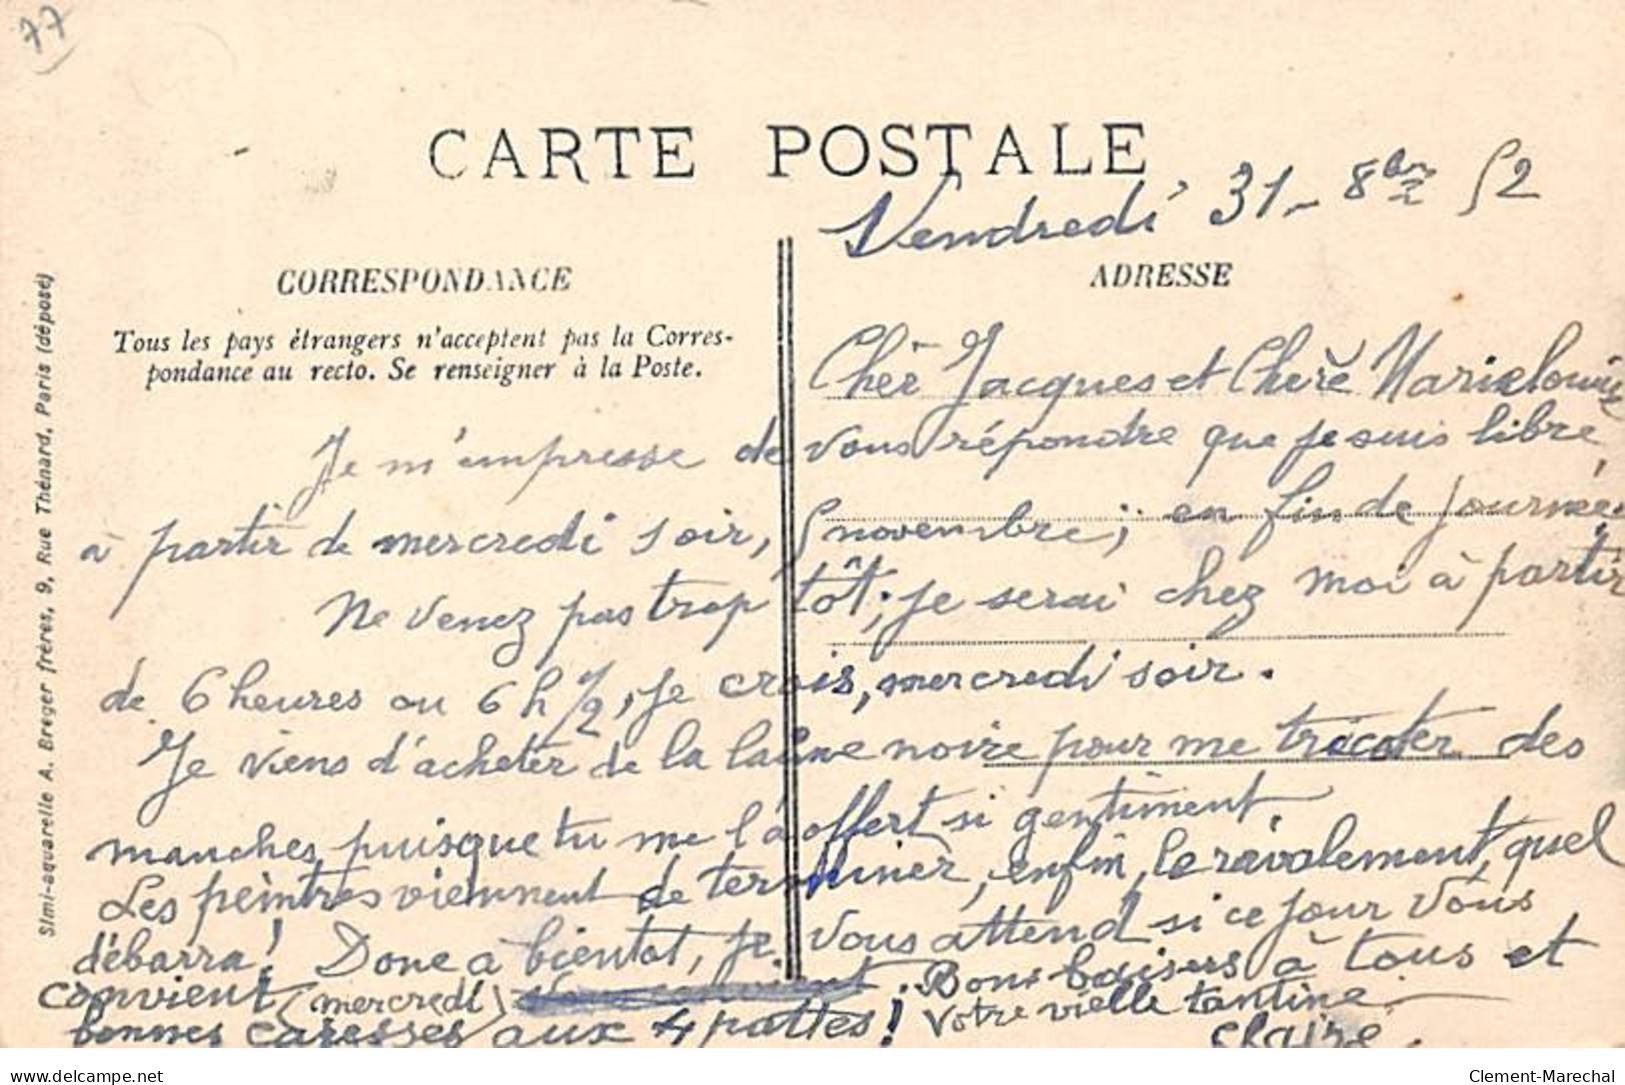 77
CARTE POSTALE
Vendredi 31 - 8bre 52
CORRESPONDANCE
ADRESSE
Tous les pays étrangers n'acceptent pas la Corres-
pondance au recto. Se renseigner à la Poste.
Simi-aquarelle A. Breger frères, 9, Rue Thénard, Paris (déposé)
Cher Jacques et Chère Marielouise
Je m'empresse de vous répondre que je suis libre
à partir de mercredi soir, 5 novembre; en fin de journée
Ne venez pas trop tôt; je serai chez moi à partir
de 6 heures ou 6 h 1/2, je crois, mercredi soir.
Je viens d'acheter de la laine noire pour me tricoter des
manches, puisque tu me l'a offert si gentiment.
Les peintres viennent de terminer, enfin, le ravalement, quel
débarra! Donc à bientot, je vous attend si ce jour vous
convient (mercredi) vous convient. Bons baisers à tous et
bonnes caresses aux 4 pattes! Votre vielle tantine
Claire.
delcampe.net
Clement-Marechal